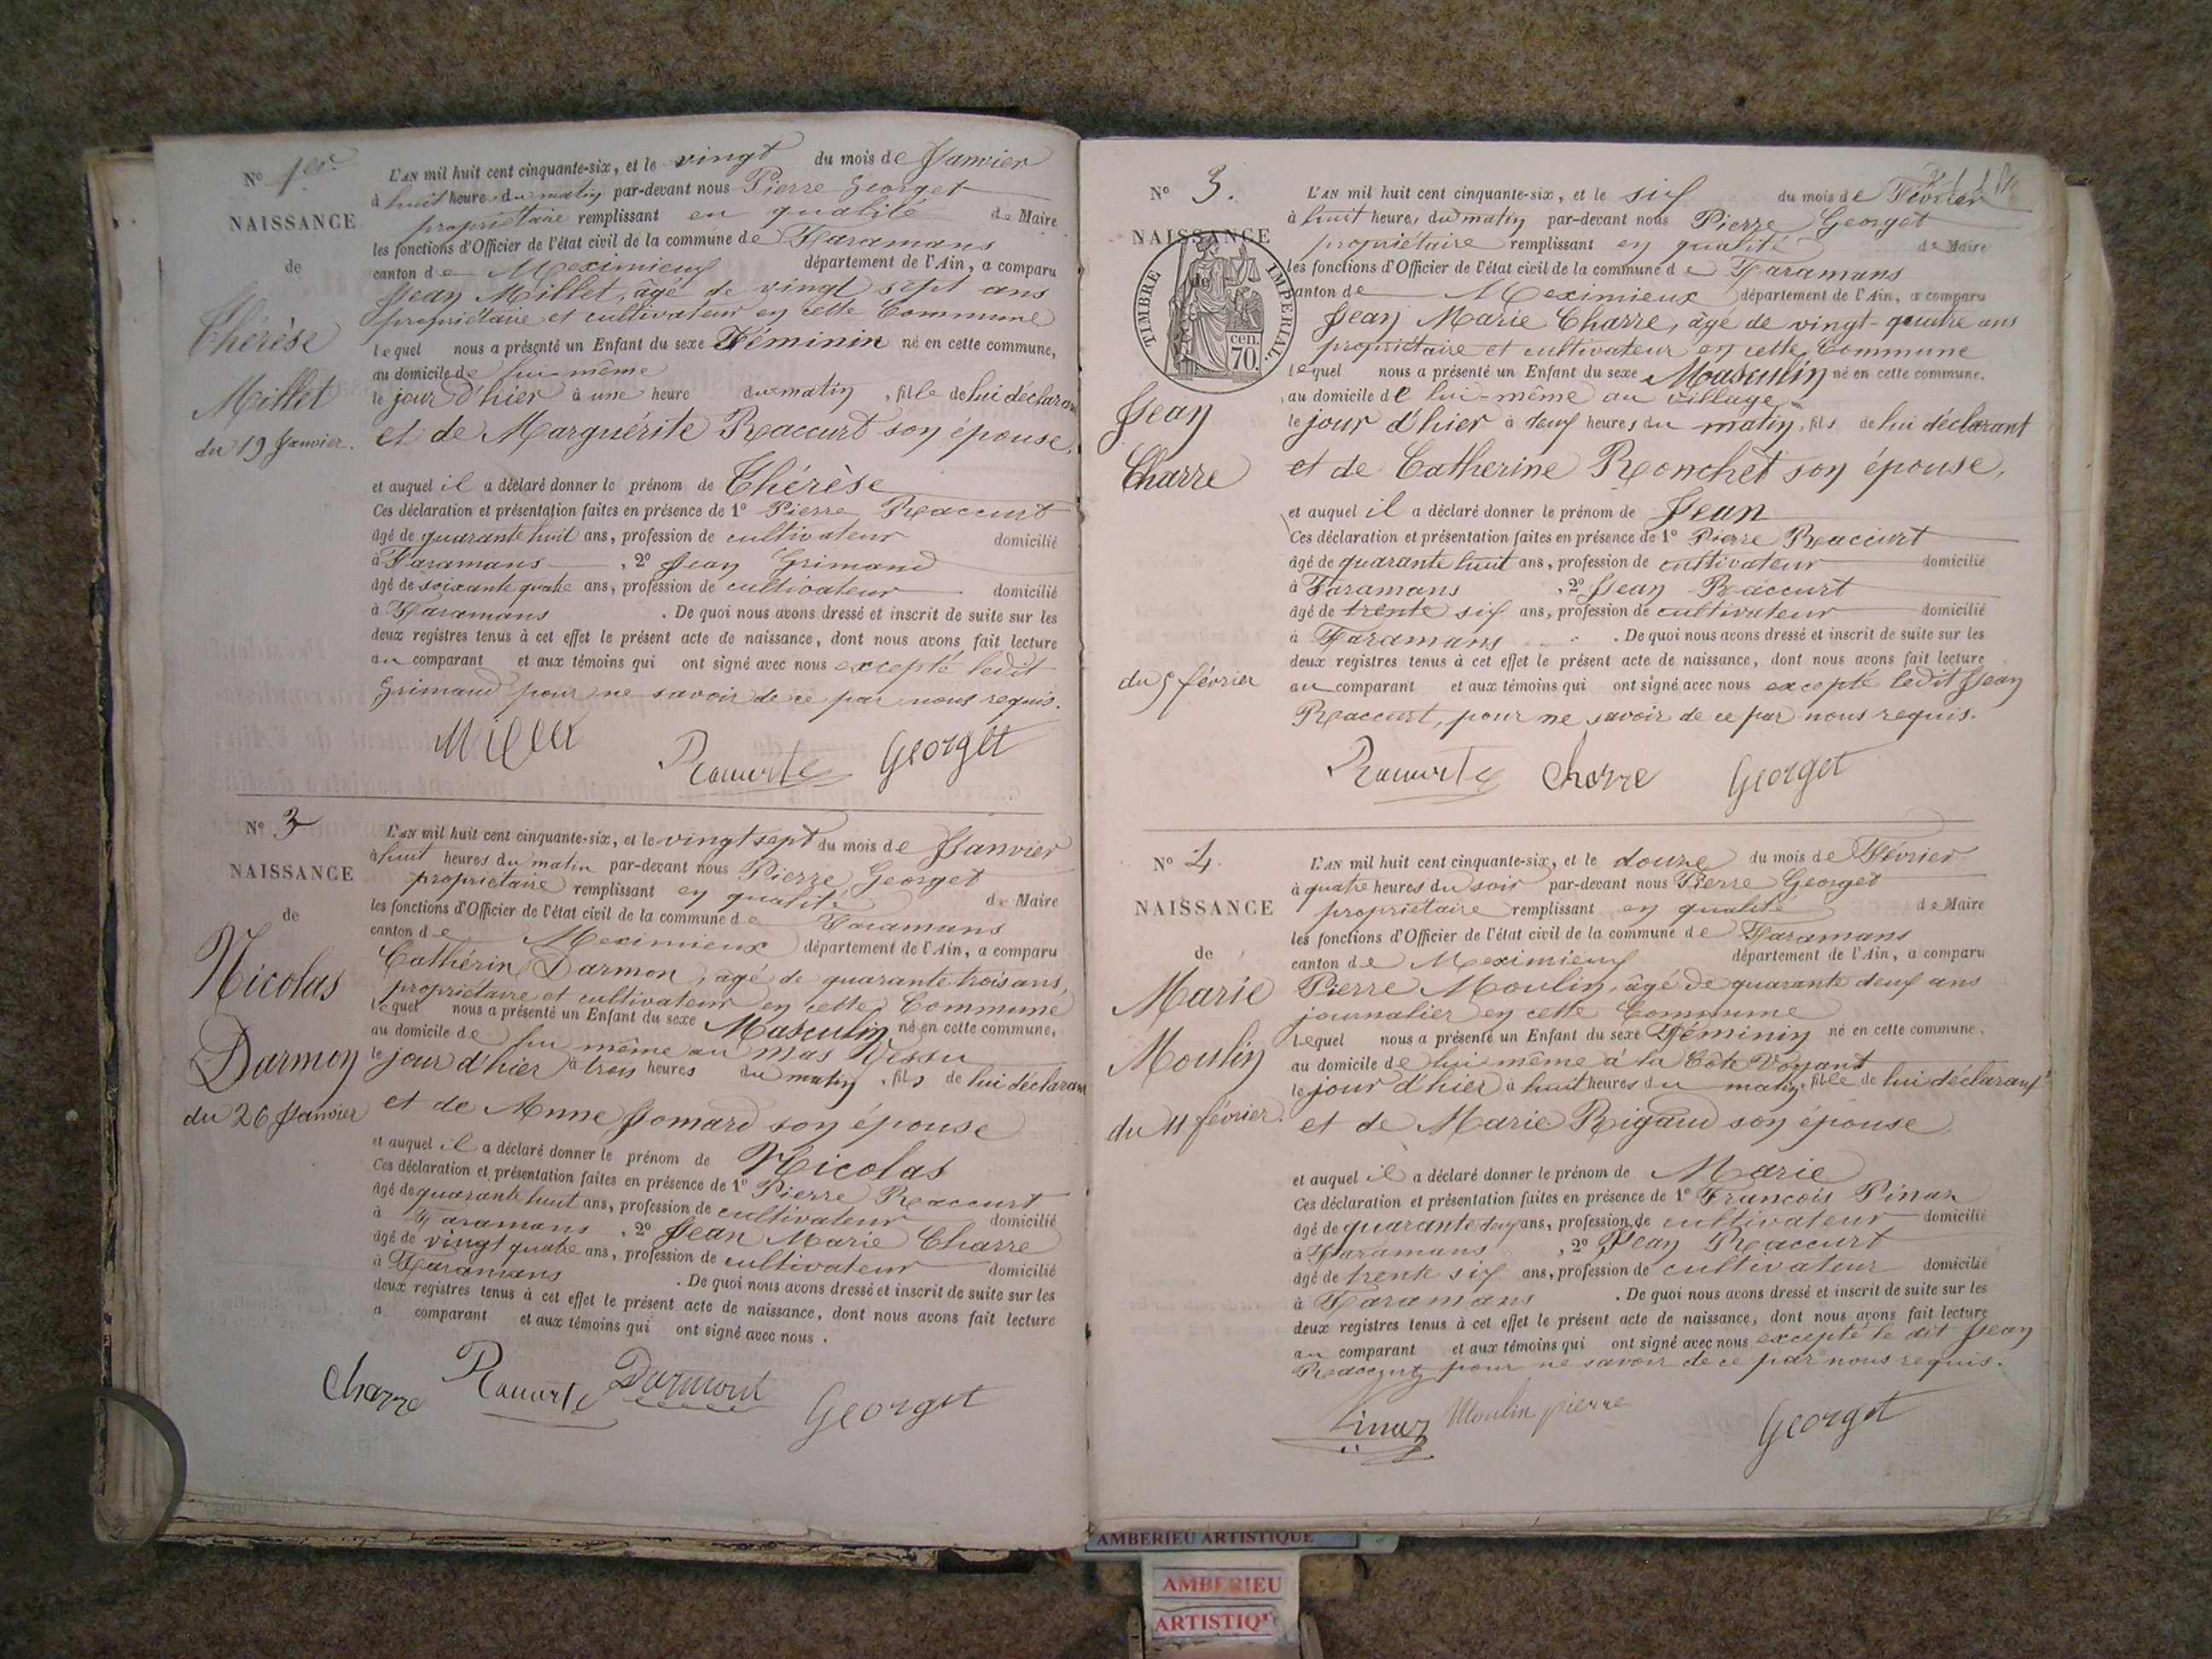 N° 1er
NAISSANCE
de
Thérèse
Millet
du 19 Janvier.
L'AN mil huit cent cinquante-six, et le vingt du mois de Janvier
à huit heures du matin par-devant nous Pierre Georget
propriétaire remplissant en qualité de Maire
les fonctions d'Officier de l'état civil de la commune de Faramans
canton de Meximieux département de l'Ain, a comparu
Jean Millet, âgé de vingt sept ans
propriétaire et cultivateur en cette Commune
lequel nous a présenté un Enfant du sexe Féminin né en cette commune,
au domicile de lui-même
le jour d'hier à une heure du matin, fille de lui déclarant
et de Marguérite Raccurt son épouse,
et auquel il a déclaré donner le prénom de Thérèse
Ces déclaration et présentation faites en présence de 1° Pierre Raccurt
âgé de quarante huit ans, profession de cultivateur domicilié
à Faramans, 2° Jean Grimand
âgé de soixante quatre ans, profession de cultivateur domicilié
à Faramans. De quoi nous avons dressé et inscrit de suite sur les
deux registres tenus à cet effet le présent acte de naissance, dont nous avons fait lecture
au comparant et aux témoins qui ont signé avec nous excepté ledit
Grimand pour ne savoir de ce par nous requis.
Millet Georget
N°
NAISSANCE
de
Nicolas
Darmon
du 26 Janvier
L'AN mil huit cent cinquante-six, et le vingt sept du mois de Janvier
à huit heures du matin par-devant nous Pierre Georget
propriétaire remplissant en qualité de Maire
les fonctions d'Officier de l'état civil de la commune de Faramans
canton de Meximieux département de l'Ain, a comparu
Cathérin Darmon, âgé de quarante trois ans,
propriétaire et cultivateur en cette Commune
lequel nous a présenté un Enfant du sexe Masculin né en cette commune,
au domicile de lui même au mas
le jour d'hier à trois heures du matin, fils de lui déclarant
et de Anne Jomard son épouse
et auquel il a déclaré donner le prénom de Nicolas
Ces déclaration et présentation faites en présence de 1° Pierre Raccurt
âgé de quarante huit ans, profession de cultivateur domicilié
à Faramans, 2° Jean Marie Charre
âgé de vingt quatre ans, profession de cultivateur domicilié
à Faramans. De quoi nous avons dressé et inscrit de suite sur les
deux registres tenus à cet effet le présent acte de naissance, dont nous avons fait lecture
a comparant et aux témoins qui ont signé avec nous.
Charre Darmont Georget
N° 3.
NAISSANCE
de
TIMBRE IMPÉRIAL.
70. cen.
Jean
Charre
du 5 février
L'AN mil huit cent cinquante-six, et le six du mois de Février
à huit heures du matin par-devant nous Pierre Georget
propriétaire remplissant en qualité de Maire
les fonctions d'Officier de l'état civil de la commune de Faramans
canton de Meximieux département de l'Ain, a comparu
Jean Marie Charre, âgé de vingt-quatre ans
propriétaire et cultivateur en cette Commune
lequel nous a présenté un Enfant du sexe Masculin né en cette commune,
au domicile de lui-même au village
le jour d'hier à deux heures du matin, fils de lui déclarant
et de Catherine Ronchet son épouse,
et auquel il a déclaré donner le prénom de Jean
Ces déclaration et présentation faites en présence de 1° Pierre Raccurt
âgé de quarante huit ans, profession de cultivateur domicilié
à Faramans, 2° Jean Raccurt
âgé de trente six ans, profession de cultivateur domicilié
à Faramans. De quoi nous avons dressé et inscrit de suite sur les
deux registres tenus à cet effet le présent acte de naissance, dont nous avons fait lecture
au comparant et aux témoins qui ont signé avec nous excepté ledit Jean
Raccurt, pour ne savoir de ce par nous requis.
Charre Georget
N° 4.
NAISSANCE
de
Marie
Moulin
du 11 février.
L'AN mil huit cent cinquante-six, et le douze du mois de Février
à quatre heures du soir par-devant nous Pierre Georget
propriétaire remplissant en qualité de Maire
les fonctions d'Officier de l'état civil de la commune de Faramans
canton de Meximieux département de l'Ain, a comparu
Pierre Moulin, âgé de quarante deux ans
journalier en cette Commune
Lequel nous a présenté un Enfant du sexe Féminin né en cette commune,
au domicile de lui même à la Côte
le jour d'hier à huit heures du matin, fille de lui déclarant
et de Marie Rigaud son épouse,
et auquel il a déclaré donner le prénom de Marie
Ces déclaration et présentation faites en présence de 1° François Pinaz
âgé de quarante deux ans, profession de cultivateur domicilié
à Faramans, 2° Jean Raccurt
âgé de trente six ans, profession de cultivateur domicilié
à Faramans. De quoi nous avons dressé et inscrit de suite sur les
deux registres tenus à cet effet le présent acte de naissance, dont nous avons fait lecture
au comparant et aux témoins qui ont signé avec nous excepté le dit Jean
Raccurt pour ne savoir de ce par nous requis.
Pinaz Moulin pierre Georget
AMBERIEU ARTISTIQUE
AMBERIEU
ARTISTIQ